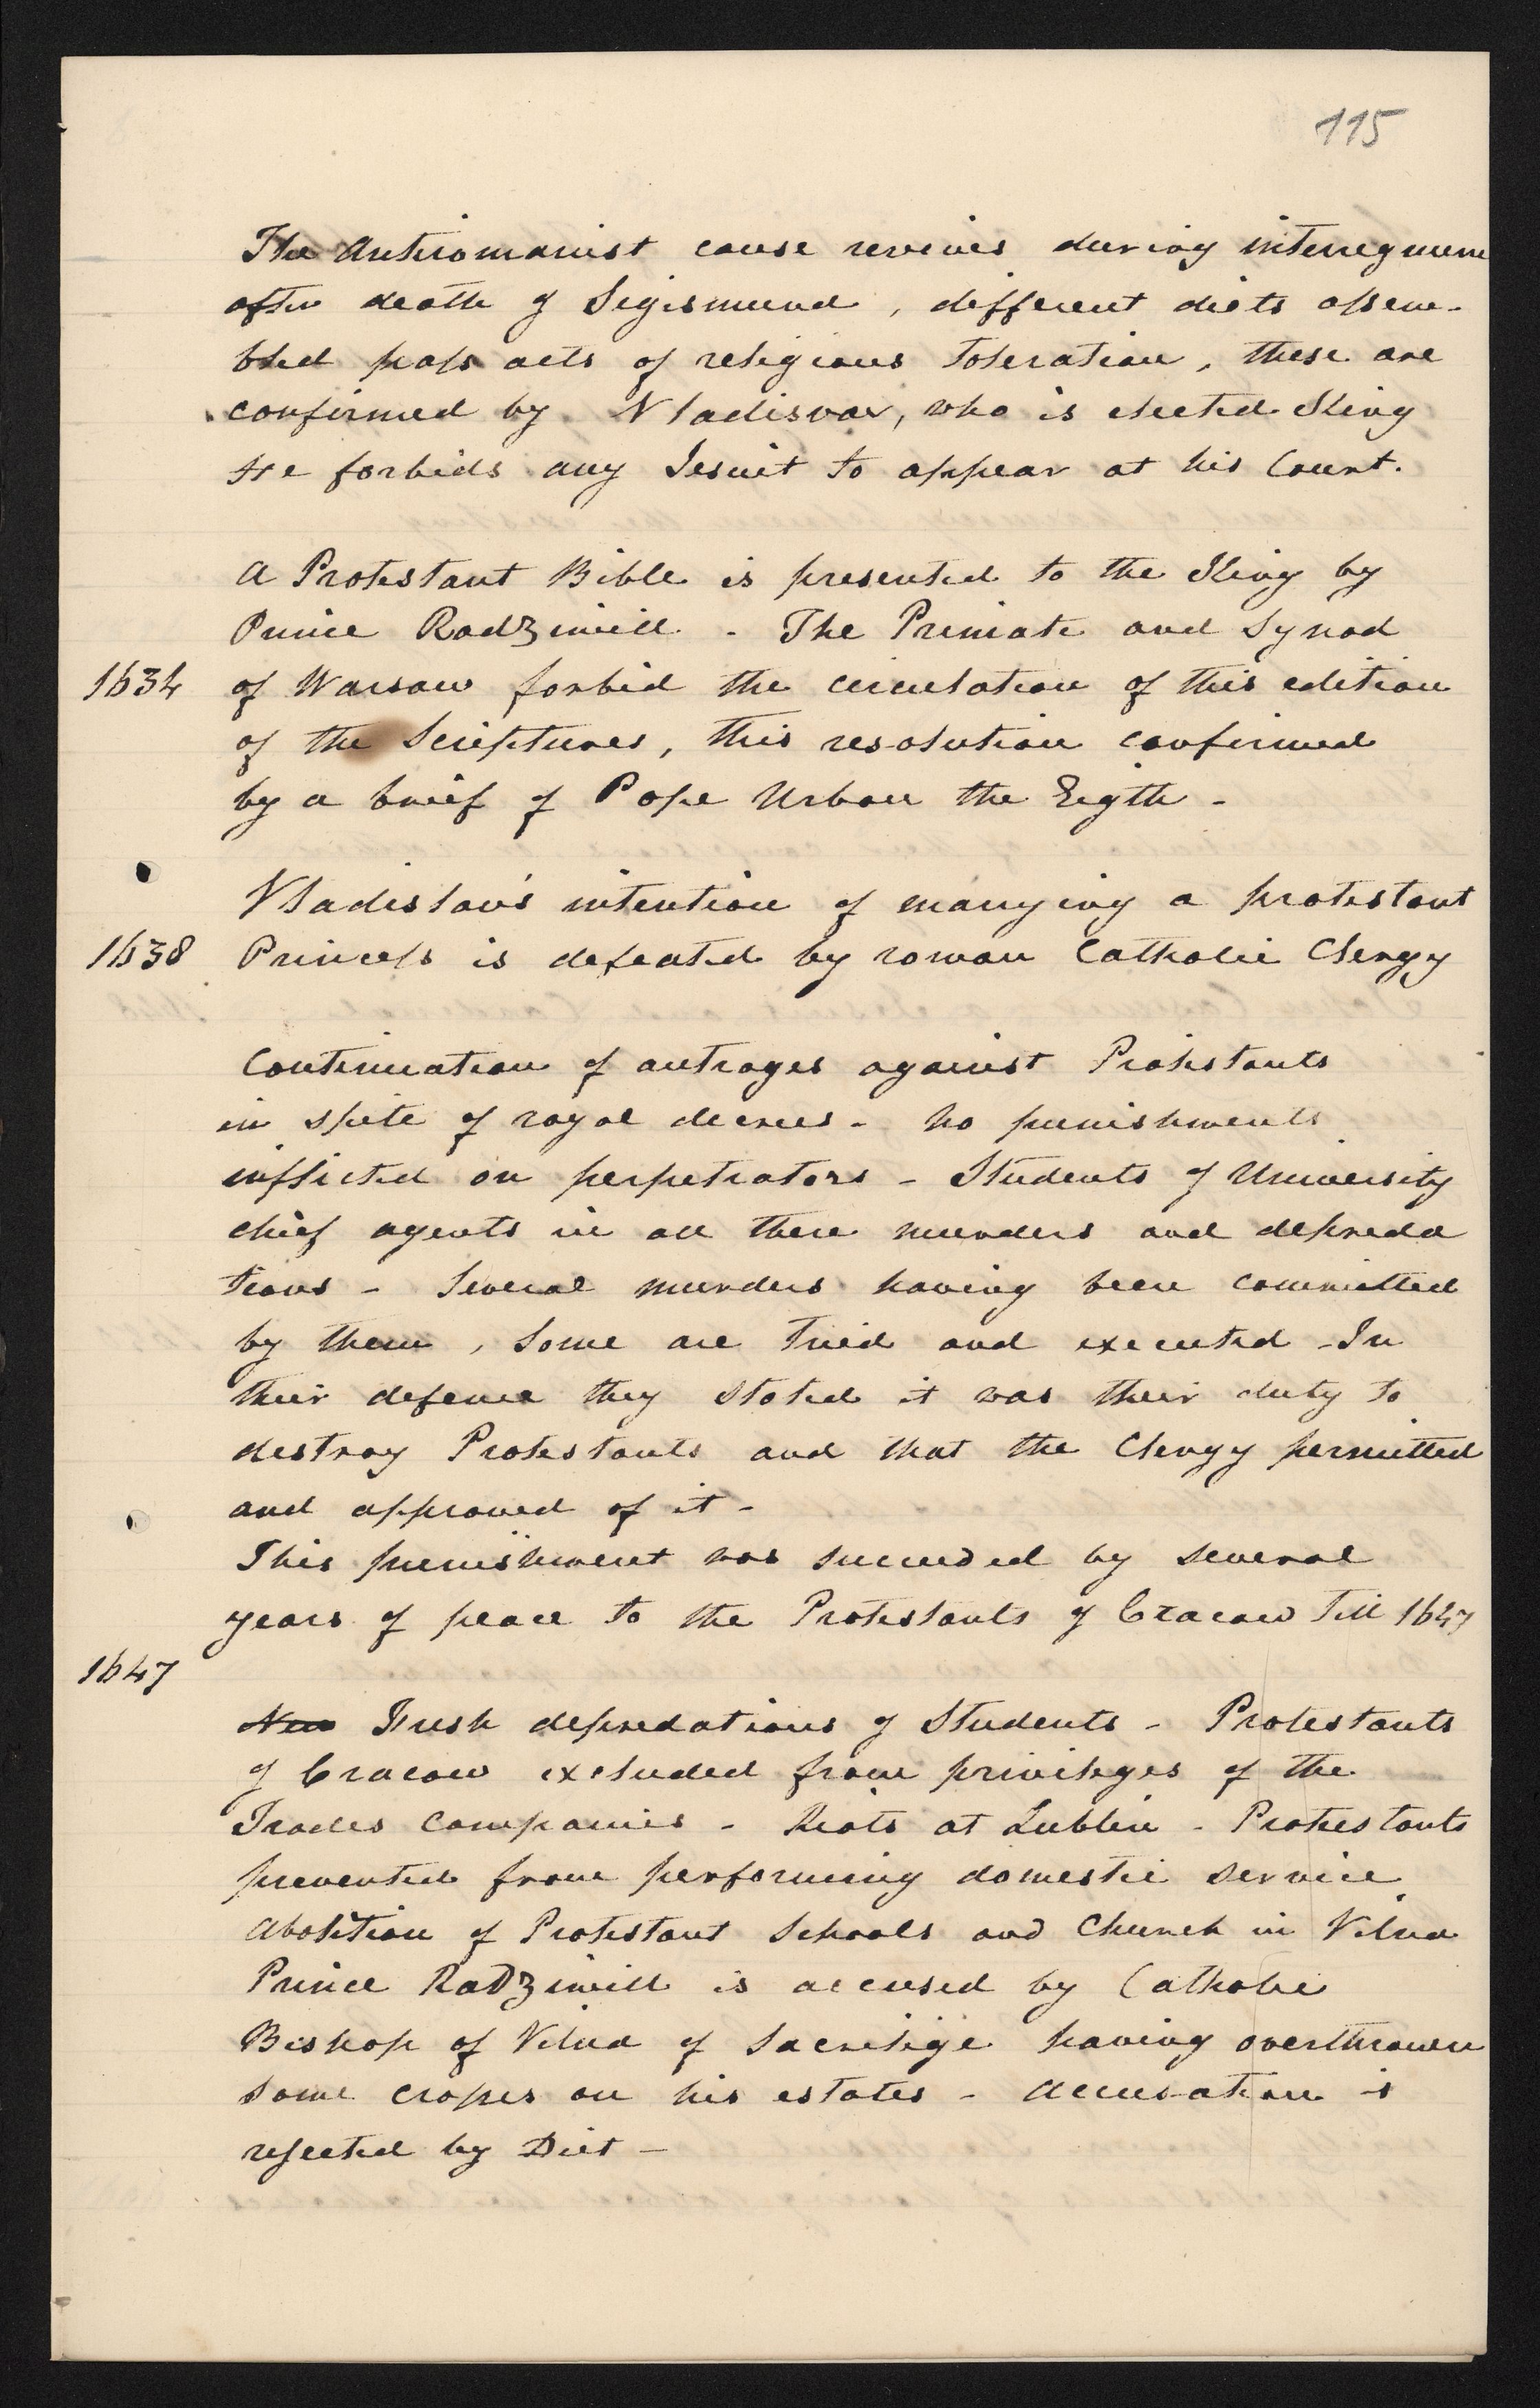 115
The Antiromanist cause revives during interregnum
after death of Sigismund, different diets assem-
bled pass acts of religious toleration, these are
confirmed by Vladisvav, who is elected King
He forbids any Jesuit to appear at his Court.
A Protestant Bible is presented to the King by
Prince Radziwill - The Primate and Synod
1634 of Warsaw forbid the circulation of this edition
of the Scriptures, this resolution confirmed
by a brief of Pope Urban the Eigth -
Vladislav's intention of marrying a protestant
1638 Princess is defeated by roman Catholic Clergy
Continuation of outrages against Protestants
in spite of royal decrees - no punishments
inflicted on perpetrators - Students of University
chief agents in all these murders and depreda
tions - Several murders having been committed
by them, some are tried and executed - In
their defence they stated it was their duty to
destroy Protestants and that the Clergy permitted
and approved of it -
This punishment was succeeded by several
years of peace to the Protestants of Cracow till 1647
1647
New Fresh depredations of Students - Protestants
of Cracow excluded from privileges of the
Trades Companies - Riots at Lublin - Protestants
prevented from performing domestic service
Abolition of Protestant Schools and Church in Vilna
Prince Radziwill is accused by Catholic
Bishop of Vilna of Sacrilige having overthrown
some crosses on his estates - accusation is
rejected by Diet -